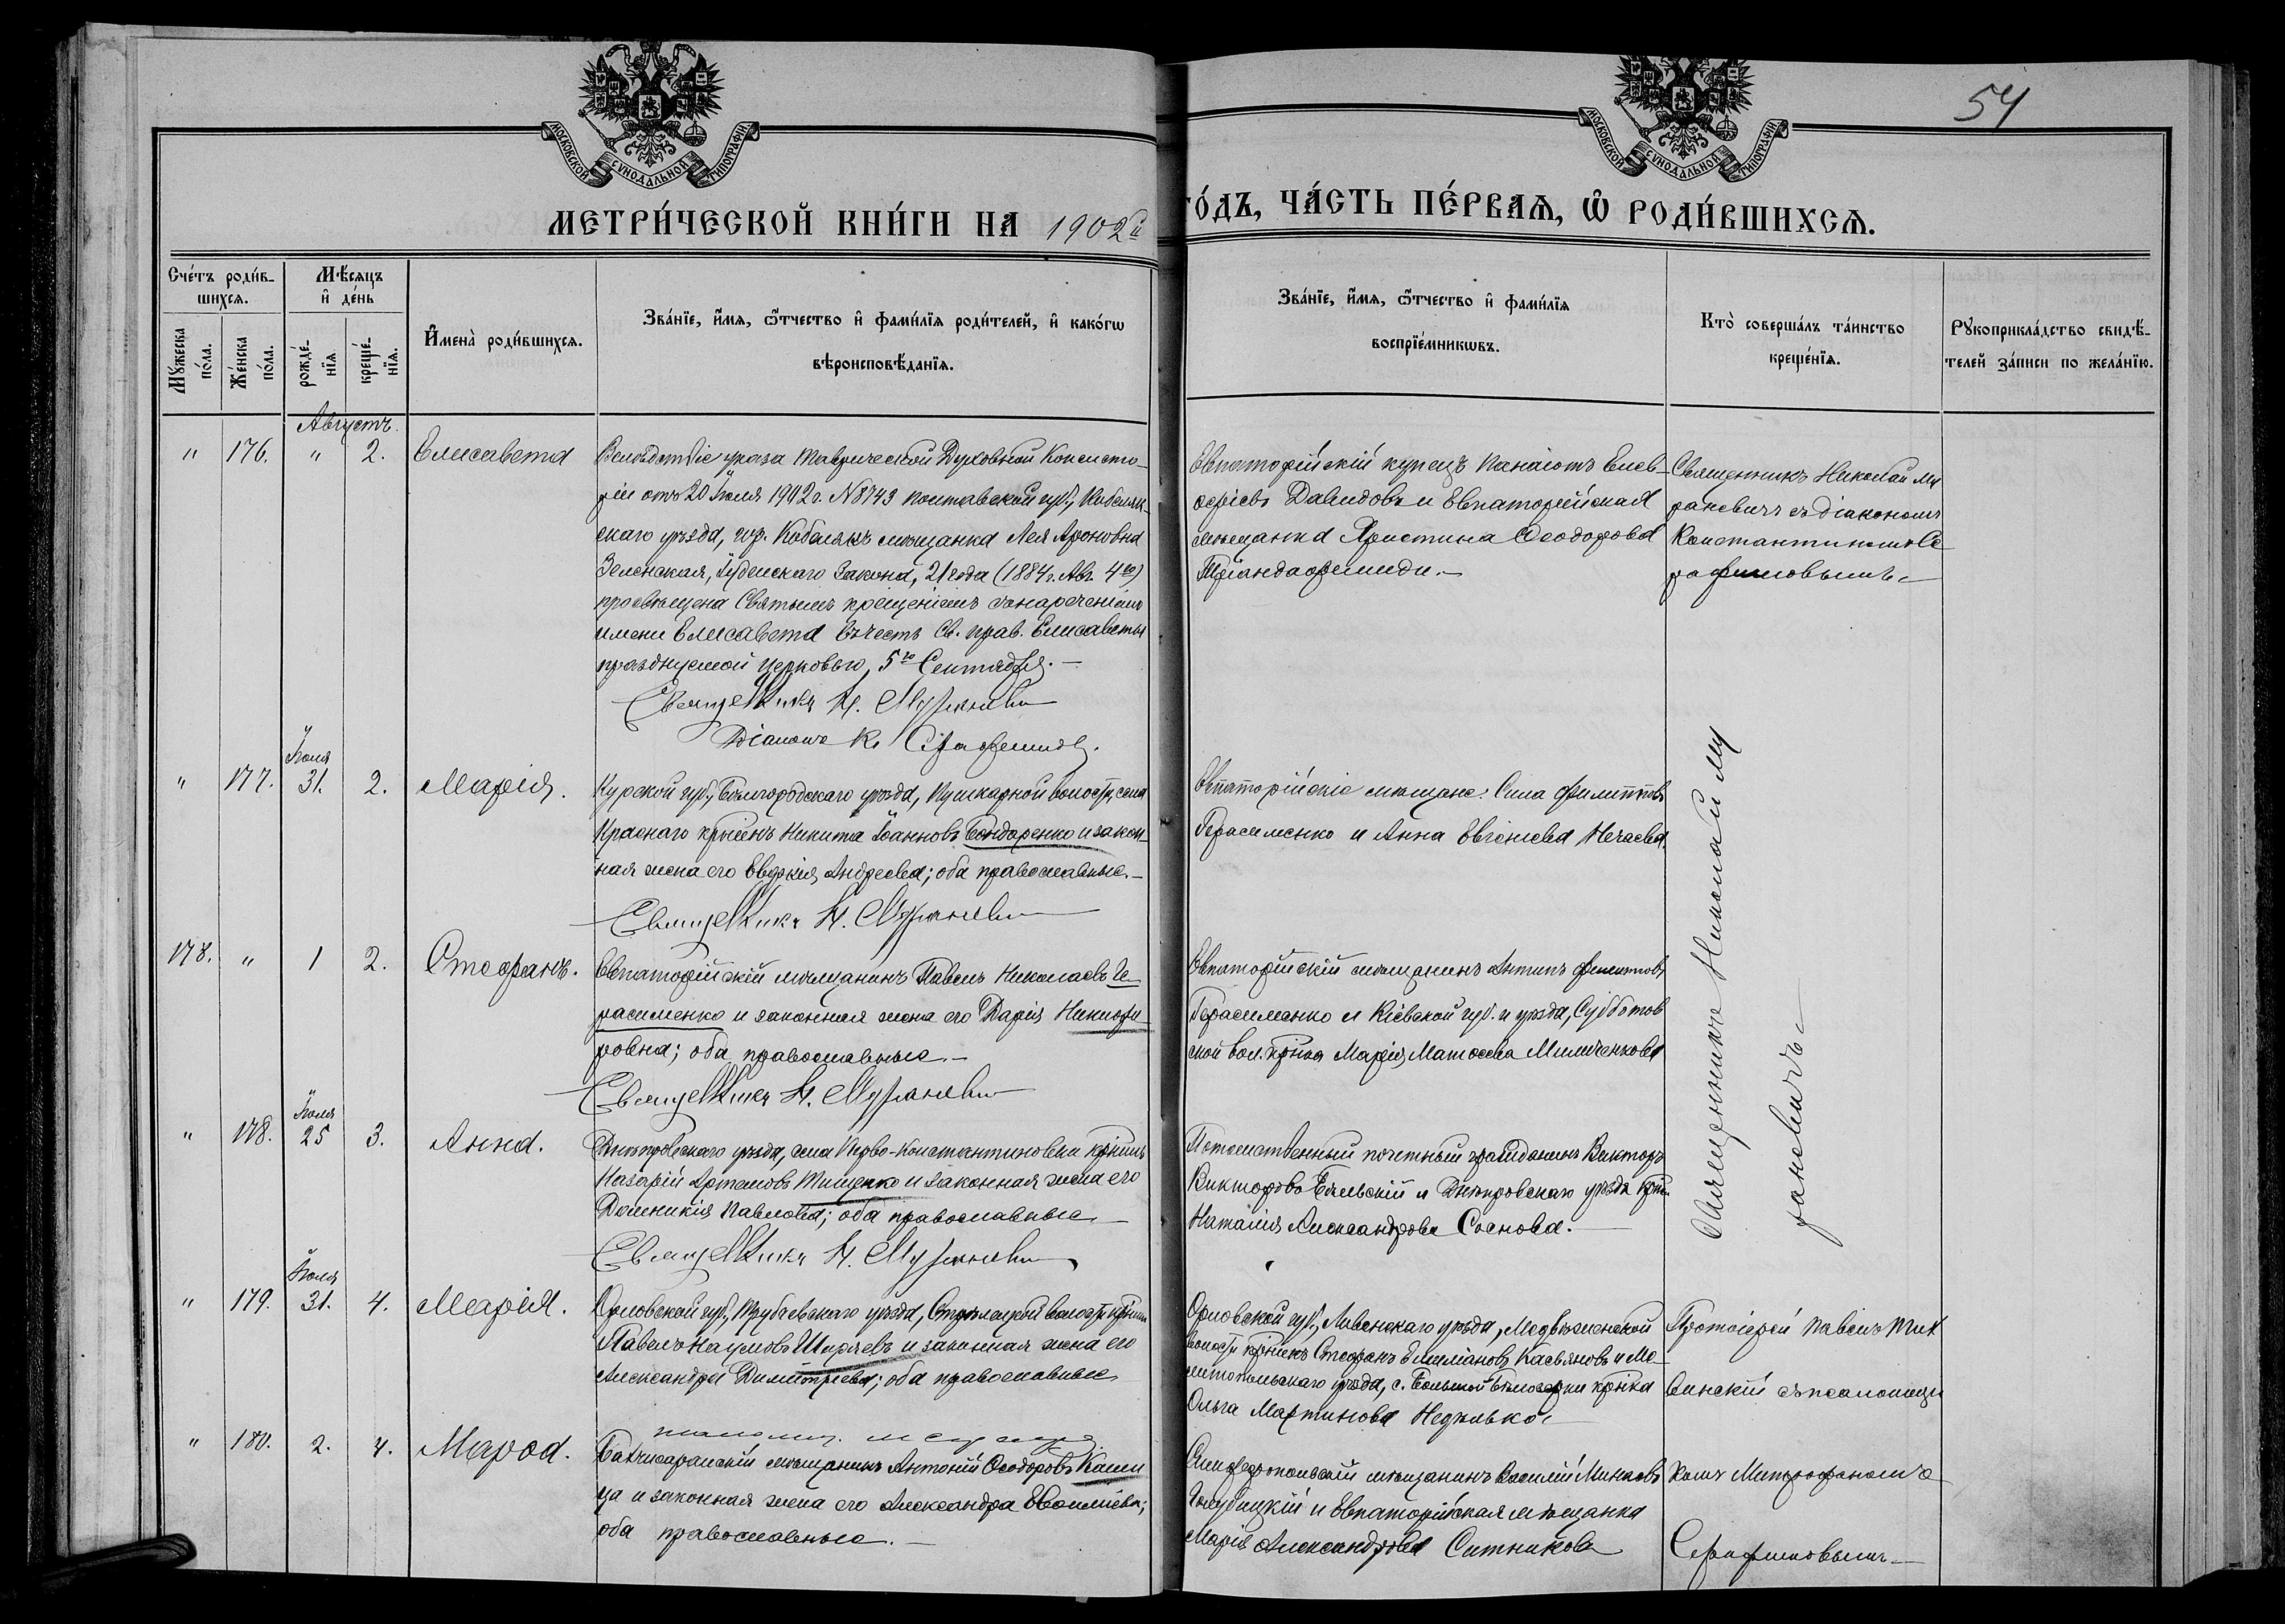 54
МОСКОВСКОЙ СѴНОДАЛЬНОЙ ТИПОГРАФІИ
МОСКОВСКОЙ СѴНОДАЛЬНОЙ ТИПОГРАФІИ
МЕТРИ́ЧЕСКОЙ КНИ́ГИ НА 1902й
ГО́ДЪ, ЧА́СТЬ ПЕ́РВАѦ, Ѡ РОДИ́ВШИХСѦ.
Сче́тъ роди́в-
шихсѧ.
Мꙋ́жеска по́ла.
Же́нска по́ла.
Мѣ́сѧцъ
и҆ де́нь
рожде́-нїѧ
креще́-нїѧ.
И҆мена̀ роди́вшихсѧ.
Зва́нїе, и҆́мѧ, ѻ҆́тчество и҆ фами́лїѧ роди́телей, и҆ како́гѡ
вѣроисповѣ́данїѧ.
Зва́нїе, и҆́мѧ, ѻ҆́тчество и҆ фами́лїѧ
воспрїе́мникѡвъ.
Кто̀ соверша́лъ та́инство
креще́нїѧ.
Рꙋкоприкла́дство свидѣ́-
телей за́писи по жела́нїю.
Августъ.
" 176. " 2. Елисавета
Вслѣдствіе указа Таврической Духовной Консисто-
ріи отъ 20 Іюля 1902 г. N 8743 Полтавской губ., Кобеляк-
скаго уѣзда, гор. Кобелякъ мѣщанка Лея Ароновна
Зеленская, Іудейскаго Закона, 21 года (1884 г. Авг. 4го)
просвѣщена Святымъ крещеніемъ съ нареченіемъ
имени Елисавета въ честь Св. прав. Елисаветы
празднуемой церковью, 5го Сентября. —
Священникъ Н. Мураневич
Діаконъ К. Серафимовъ.
Евпаторійскій купецъ Панаіотъ Елев-
феріевъ Давидовъ и Евпаторійская
мѣщанка Христина Ѳеодорова
Тріандафилиди. —
Священникъ Николай Му
раневичъ съ діакономъ
Константиномъ Се
рафимовымъ. —
Іюля
" 177. 31. 2. Марія.
Курской губ., Бѣлгородскаго уѣзда, Пушкарной волости, села
Краснаго кр-нинъ Никита Іоанновъ Бондаренко и закон-
ная жена его Евдокія Андреева; оба православные. —
Священникъ Н. Мураневич
Евпаторійскіе мѣщане: Сила Филипповъ
Герасименко и Анна Евгеніева Нечаева.
Священникъ Николай Му
раневичъ —
178. " 1 2. Стефанъ.
Евпаторійскій мѣщанинъ Павелъ Николаевъ Ге-
расименко и законная жена его Дарія Никифо-
ровна; оба православные. —
Священникъ Н. Мураневич
Евпаторійскій мѣщанинъ Антипъ Филипповъ
Герасименко и Кіевской губ. и уѣзда, Субботов
ской вол. кр-нка Марія Матѳеева
Іюля
" 178. 25 3. Анна.
Днѣпровскаго уѣзда, села Перво-Константиновки кр-нинъ
Назарій Артемовъ Тищенко и законная жена его
Домникія Павлова; оба православные. —
Священникъ Н. Мураневич
Потомственный почетный гражданинъ Викторъ
Викторовъ Бѣльскій и Днѣпровскаго уѣзда кр-нка
Наталія Александрова Соснова. —
Іюля
" 179. 31. 4. Марія.
Орловской губ., Трубчевскаго уѣзда, Стрѣлецкой волости кр-нинъ
Павелъ Наумовъ Ширяевъ и законная жена его
Александра Димитріева; оба православные
Орловской губ., Ливенскаго уѣзда, Медвѣженской
волости кр-нинъ Стефанъ Емиліановъ Касьяновъ и Ме-
литопольскаго уѣзда, с. Большой Бѣлозерки кр-нка
Ольга Мартинова Недилько. —
Протоіерей Павелъ Тих
винскій съ псаломщи
" 180. 2. 4. Марѳа.
Бахчисарайскій мѣщанинъ Антоній Ѳеодоровъ Капи
ца и законная жена его Александра
оба православные. —
Симферопольскій мѣщанинъ Василій
Голубицкій и Евпаторійская мѣщанка
Марія Александрова Ситникова
комъ Митрофаномъ
Серафимовымъ —